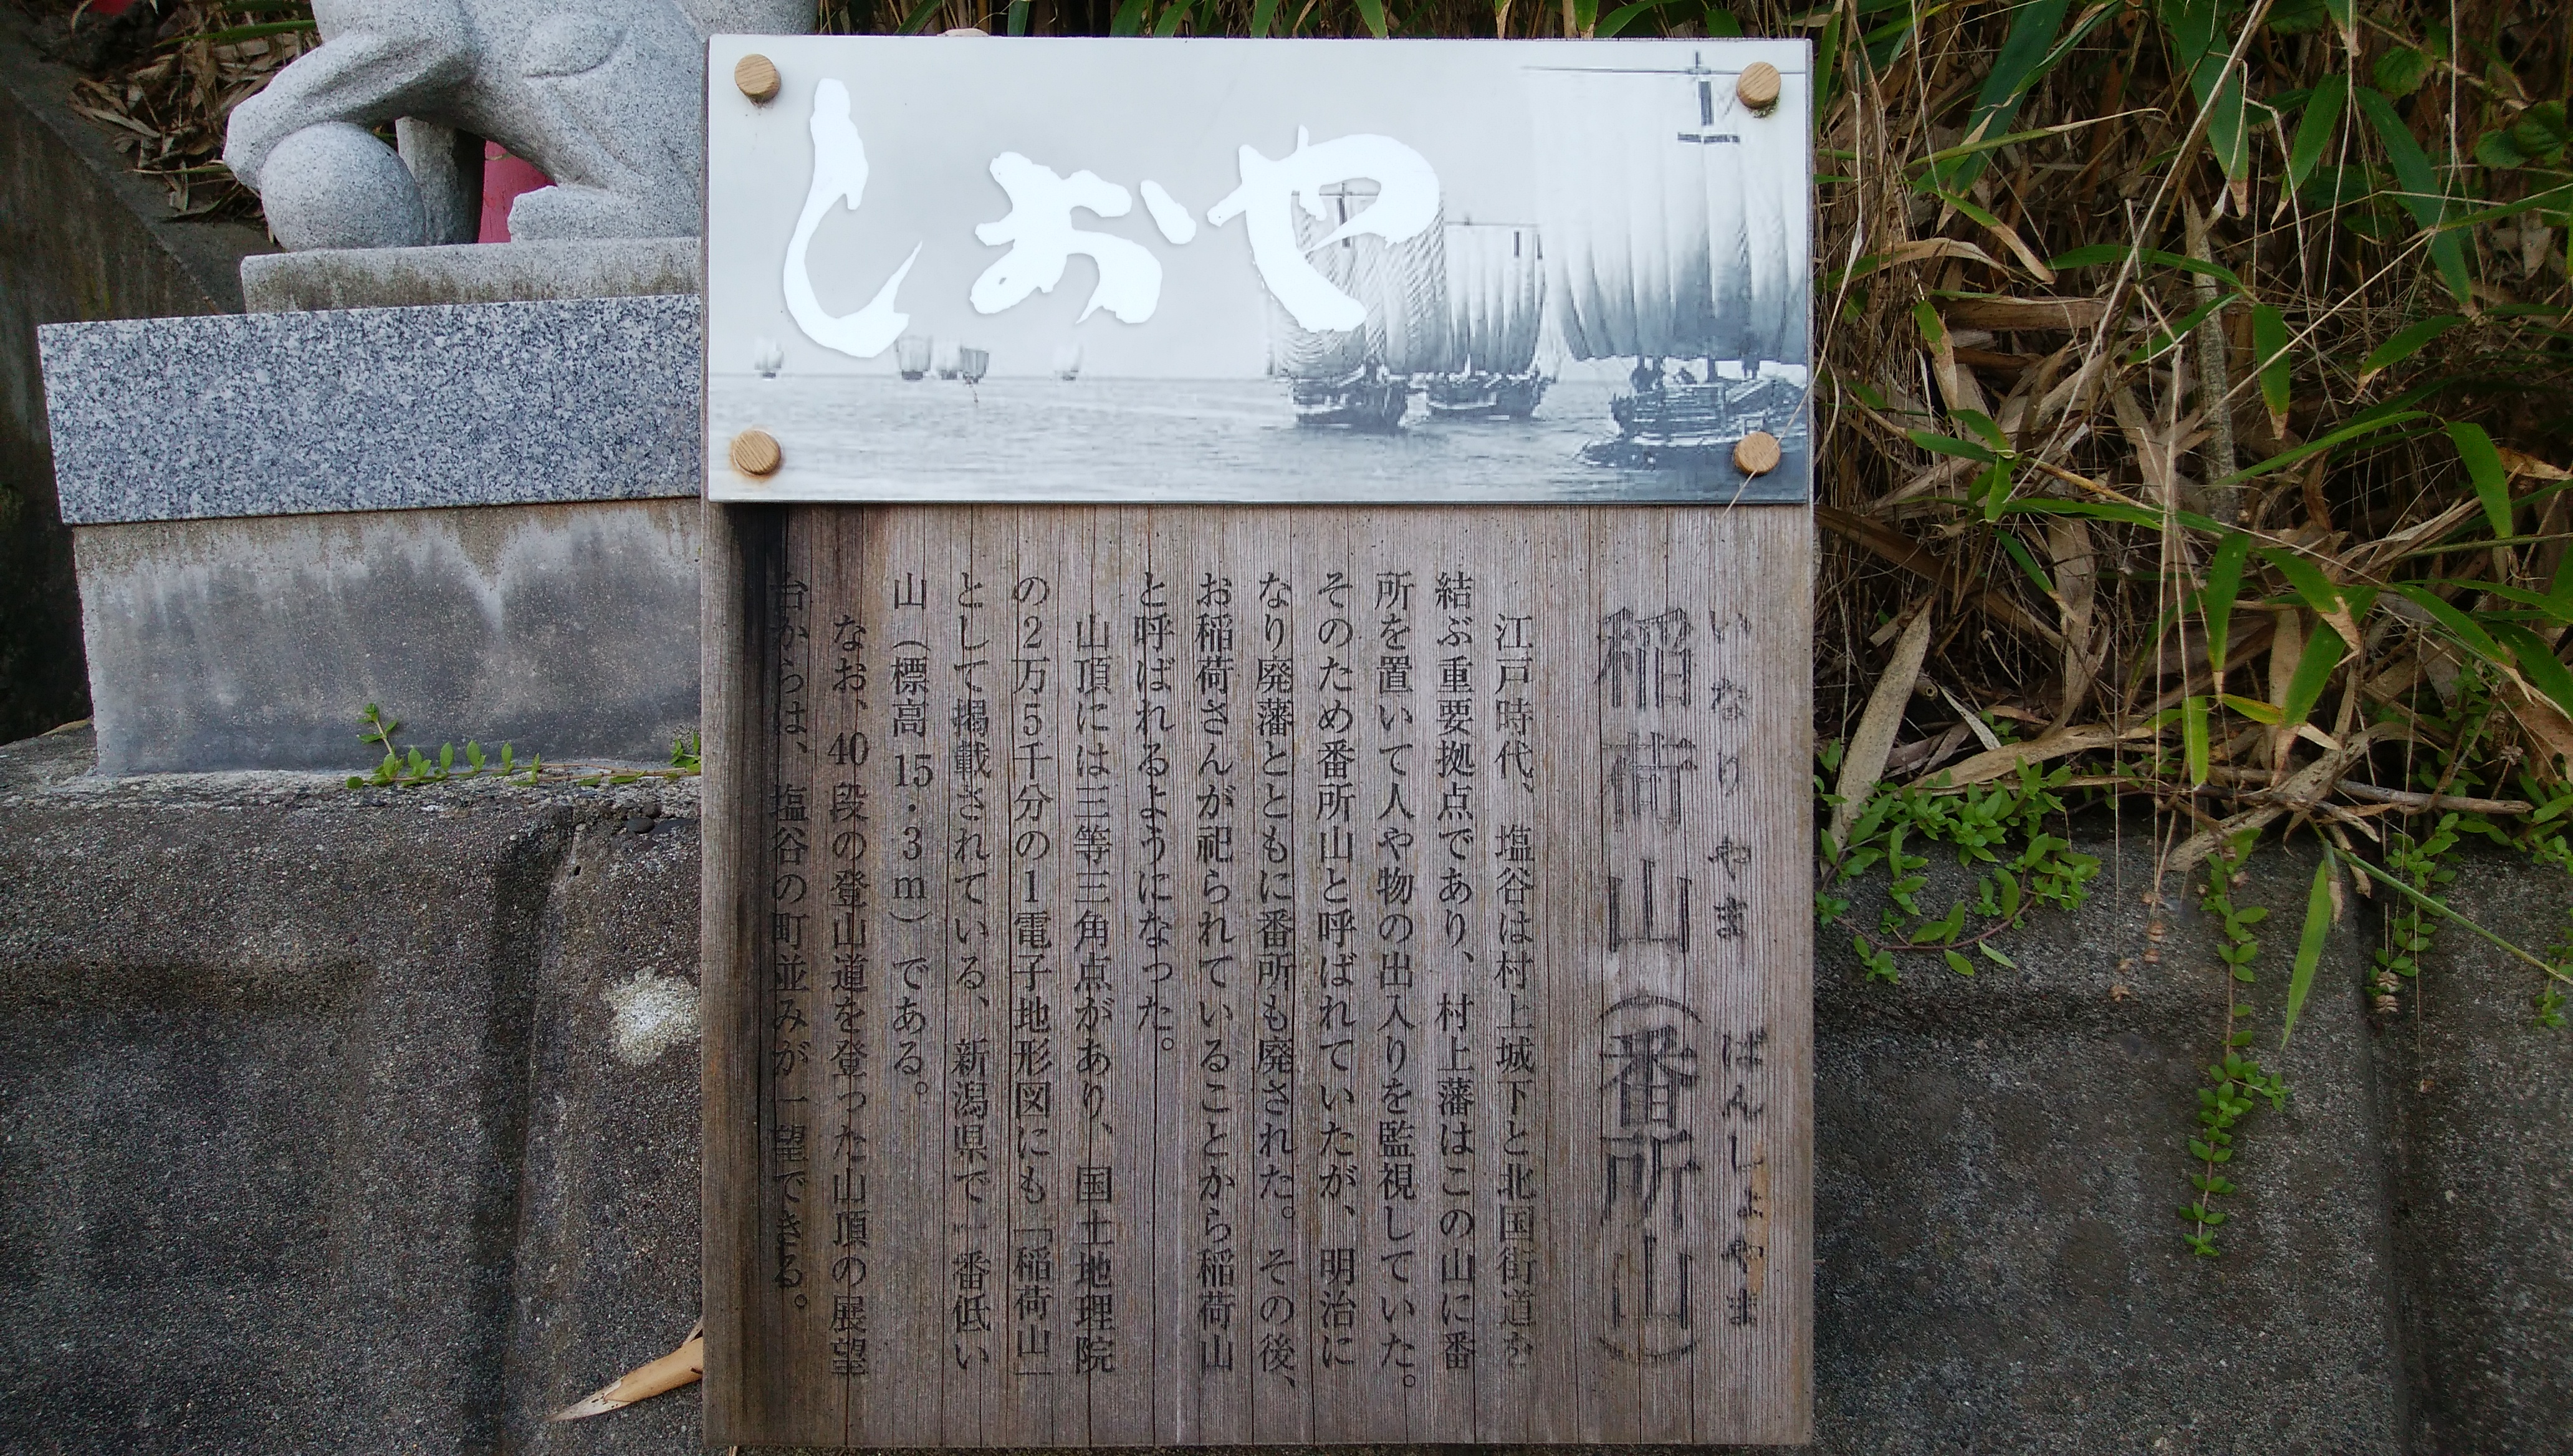 しおや
いなりやま ばんしょやま
稲荷山(番所山)
江戸時代、塩谷は村上城下と北国街道を
結ぶ重要拠点であり、村上藩はこの山に番
所を置いて人や物の出入りを監視していた。
そのため番所山と呼ばれていたが、明治に
なり廃藩とともに番所も廃された。その後、
お稲荷さんが祀られていることから稲荷山
と呼ばれるようになった。
山頂には三等三角点があり、国土地理院
の2万5千分の1電子地形図にも「稲荷山」
として掲載されている、新潟県で一番低い
山(標高15・3m)である。
なお、40段の登山道を登った山頂の展望
台からは、塩谷の町並みが一望できる。